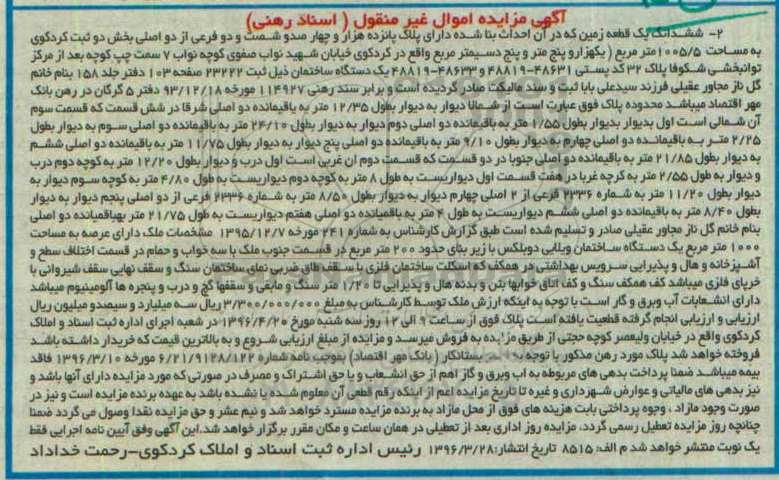 آگهی مزایده اموال غیر منقول ( اسناد رهنی)
۲- ششدانگ یک قطعه زمین که در آن احداث بنا شده دارای پلاک پانزده هزار و چهار صدو شصت و دو فرعی از دو اصلی بخش دو ثبت کردکوی
به مساحت ۱۰۰۵/۵ متر مربع ( یکهزارو پنج متر و پنج دسیمتر مربع واقع در کردکوی خیابان شهید نواب صفوی کوچه نواب ۷ سمت چپ کوچه بعد از مرکز
توانبخشی شکوفا پلاک ۳۲ کد پستی ۴۸۶۳۱-۴۸۸۱۹ و ۴۸۶۳۳-۴۸۸۱۹ یک دستگاه ساختمان ذیل ثبت ۲۳۲۲۲ صفحه ۱۰۳ دفتر جلد ۱۵۸ بنام خانم
گل ناز مجاور عقیلی فرزند سیدعلی بابا ثبت و سند مالیکت صادر گردیده است و برابر سند رهنی ۱۱۴۹۲۷ مورخه ۹۳/۱۲/۱۸ دفتر ۵ گرگان در رهن بانک
مهر اقتصاد میباشد محدوده پلاک فوق عبارت است از شمالا دیوار به دیوار بطول ۱۲/۳۵ متر به باقیمانده دو اصلی شرقا در شش قسمت که قسمت سوم
آن شمالی است اول بدیوار بدیوار بطول ۱/۵۵ متر به باقیمانده دو اصلی دوم دیوار به دیوار بطول ۲۴/۱۰ متر به باقیمانده دو اصلی سوم به دیوار بطول
۲/۲۵ متر به باقیمانده دو اصلی چهارم به دیوار بطول ۹/۱۰ متر به باقیمانده دو اصلی پنج دیوار به دیوار بطول ۱۱/۷۵ متر به باقیمانده دو اصلی ششم
به دیوار بطول ۲۱/۸۵ متر به باقیمانده دو اصلی جنوبا در دو قسمت که قسمت دوم ان غربی است اول درب و دیوار بطول ۱۲/۲۰ متر به کوچه دوم درب
و دیوار به طول ۲/۵۵ متر به کرچه غربا در هفت قسمت اول دیواریست به طول ۸ متر به کوچه دوم دیواریست به طول ۴/۸۰ متر به کوچه سوم دیوار به
دیوار بطول ۱۱/۲۰ متر به شماره ۲۳۳۶ فرعی از ۲ اصلی چهارم دیوار به دیوار بطول ۸/۵۰ متر به شماره ۲۳۳۶ فرعی از دو اصلی پنجم دیوار به دیوار
بطول ۸/۴۰ متر به باقیمانده دو اصلی ششم دیواریست به طول ۴ متر به باقمیانده دو اصلی هفتم دیواریست به طول ۲۱/۷۵ متر بهباقمیانده دو اصلی
بنام خانم گل ناز مجاور عقیلی صادر و تسلیم شده است طبق گزارش کارشناس به شماره ۲۴۱ مورخه ۱۳۹۵/۱۲/۷ مشخصات ملک دارای عرصه به مساحت
۱۰۰۰ متر مربع یک دستگاه ساختمان ویلایی دوبلکس با زیر بنای حدود ۲۰۰ متر مربع در قسمت جنوب ملک با سه خواب و حمام در قسمت اختلاف سطح و
آشپزخانه و هال و پذیرایی سرویس بهداشتی در همکف که اسکلت ساختمان فلزی با سقف طاق ضربی نمای ساختمان سنگ و سقف نهایی سقف شیروانی با
خرپای فلزی میباشد کف همکف سنگ و کف اتاق خوابها بتن و بدنه هال و پذیرایی تا ۱/۲۰ متر سنگ و مابقی و سقفها گچ و درب و پنجره ها آلومینیوم میباشد
دارای انشعابات آب وبرق و گاز است با توجه به اینکه ارزش ملک توسط کارشناس به مبلغ ۳/۳۰۰/۰۰۰/۰۰۰ ریال سه میلیارد و سیصدو میلیون ریال
ارزیابی و ارزیابی انجام گرفته قطعیت یافته است پلاک فوق از ساعت ۹ الی ۱۲ روز سه شنبه مورخ ۱۳۹۶/۴/۲۰ در شعبه اجرای اداره ثبت اسناد و املاک
کردکوی واقع در خیابان ولیعصر کوچه حجتی از طریق مزایده به فروش میرسد و مزایده از مبلغ ارزیابی شروع و به بالاترین قیمت که خریدار داشته باشد
فروخته خواهد شد پلاک مورد رهن مذکور با توجه به بستانکار (بانک مهر اقتصاد) بموجب نامه شماره ۶/۲۱/۹۱۲۸/۱۲۲ مورخه ۱۳۹۶/۳/۱۰ فاقد
بیمه میباشد ضمنا پرداخت بدهی های مربوطه به اب وبرق و گاز اهم از حق انشعاب و یا حق اشتراک و مصرف در صورتی که مورد مزایده دارای آنها باشد و
نیز بدهی های مالیاتی و عوارض شهرداری و غیره تا تاریخ مزایده اعم از اینکه رقم قطعی آن معلوم شده یا نشده باشد به عهده برنده مزایده است و نیز در
صورت وجود مازاد ، وجوه پرداختی بابت هزینه های فوق از محل مازاد به برنده مزایده مسترد خواهد شد و نیم عشر و حق مزایده نقدا وصول می گردد ضمنا
چنانچه روز مزایده تعطیل رسمی گردد، مزایده روز اداری بعد از تعطیلی در همان ساعت و مکان مقرر برگزار خواهد شد.این آگهی وفق آیین نامه اجرایی فقط
یک نوبت منتشر خواهد شد م الف: ۸۵۱۵ تاریخ انتشار:۱۳۹۶/۳/۲۸ رئیس اداره ثبت اسناد و املاک کردکوی-رحمت خداداد